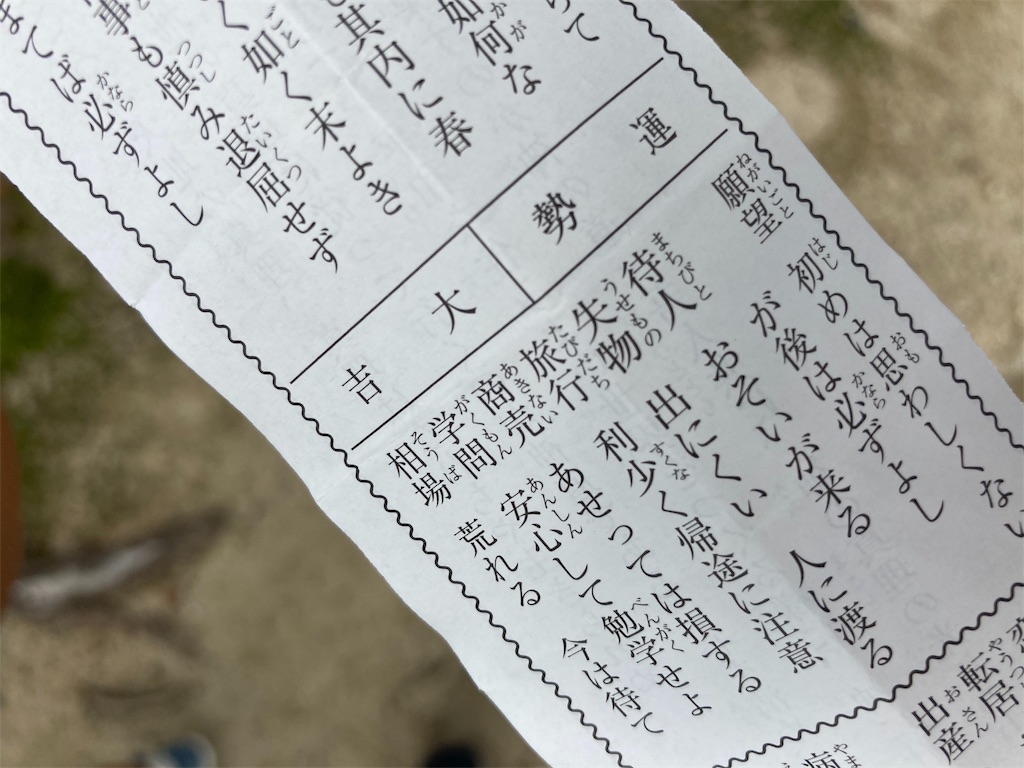 って
如何な
其内に春
く如く末よき
事も慎み退屈せず
まてば必ずよし
運勢
大吉
願望 初めは思わしくない
が後は必ずよし
待人 おそいが来る
失物 出にくい 人に渡る
旅行 利少く帰途に注意
商売 あせっては損する
学問 安心して勉学せよ
相場 荒れる 今は待て
転居
出産
病